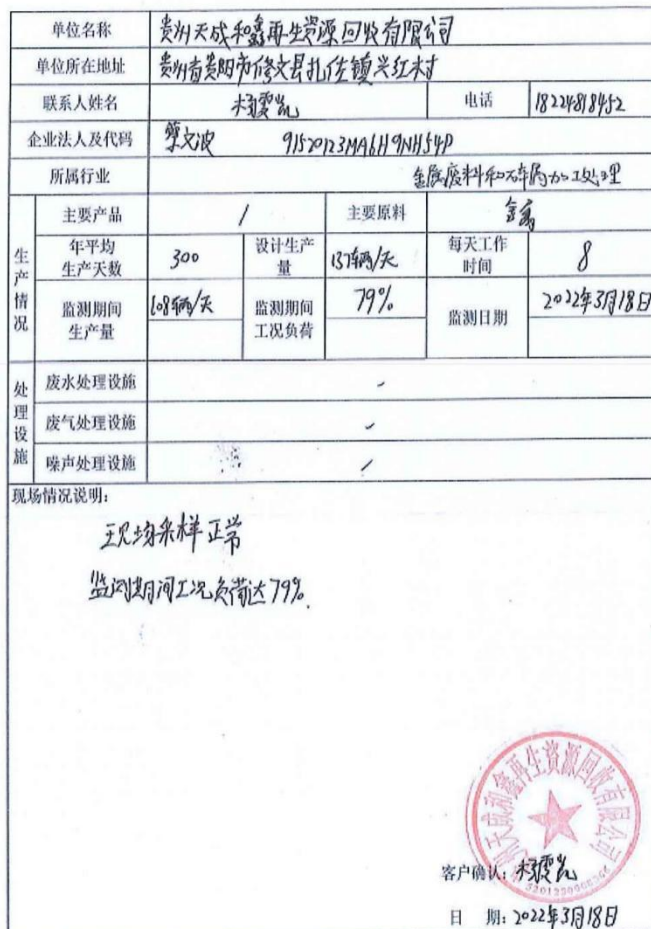 单位名称 贵州天成和鑫再生资源回收有限公司
单位所在地址 贵州省贵阳市修文县扎佐镇兴红村
联系人姓名 杨雯岚 电话 18224818452
企业法人及代码 樊文波 91520123MA6H9NH54P
所属行业 金属废料和碎屑加工处理
生产情况
主要产品 / 主要原料 金属
年平均生产天数 300 设计生产量 137辆/天 每天工作时间 8
监测期间生产量 108辆/天 监测期间工况负荷 79% 监测日期 2022年3月18日
处理设施
废水处理设施 /
废气处理设施 /
噪声处理设施 /
现场情况说明:
现场采样正常
监测期间工况负荷达79%.
贵州天成和鑫再生资源回收有限公司
客户确认:
日 期: 2022年3月18日